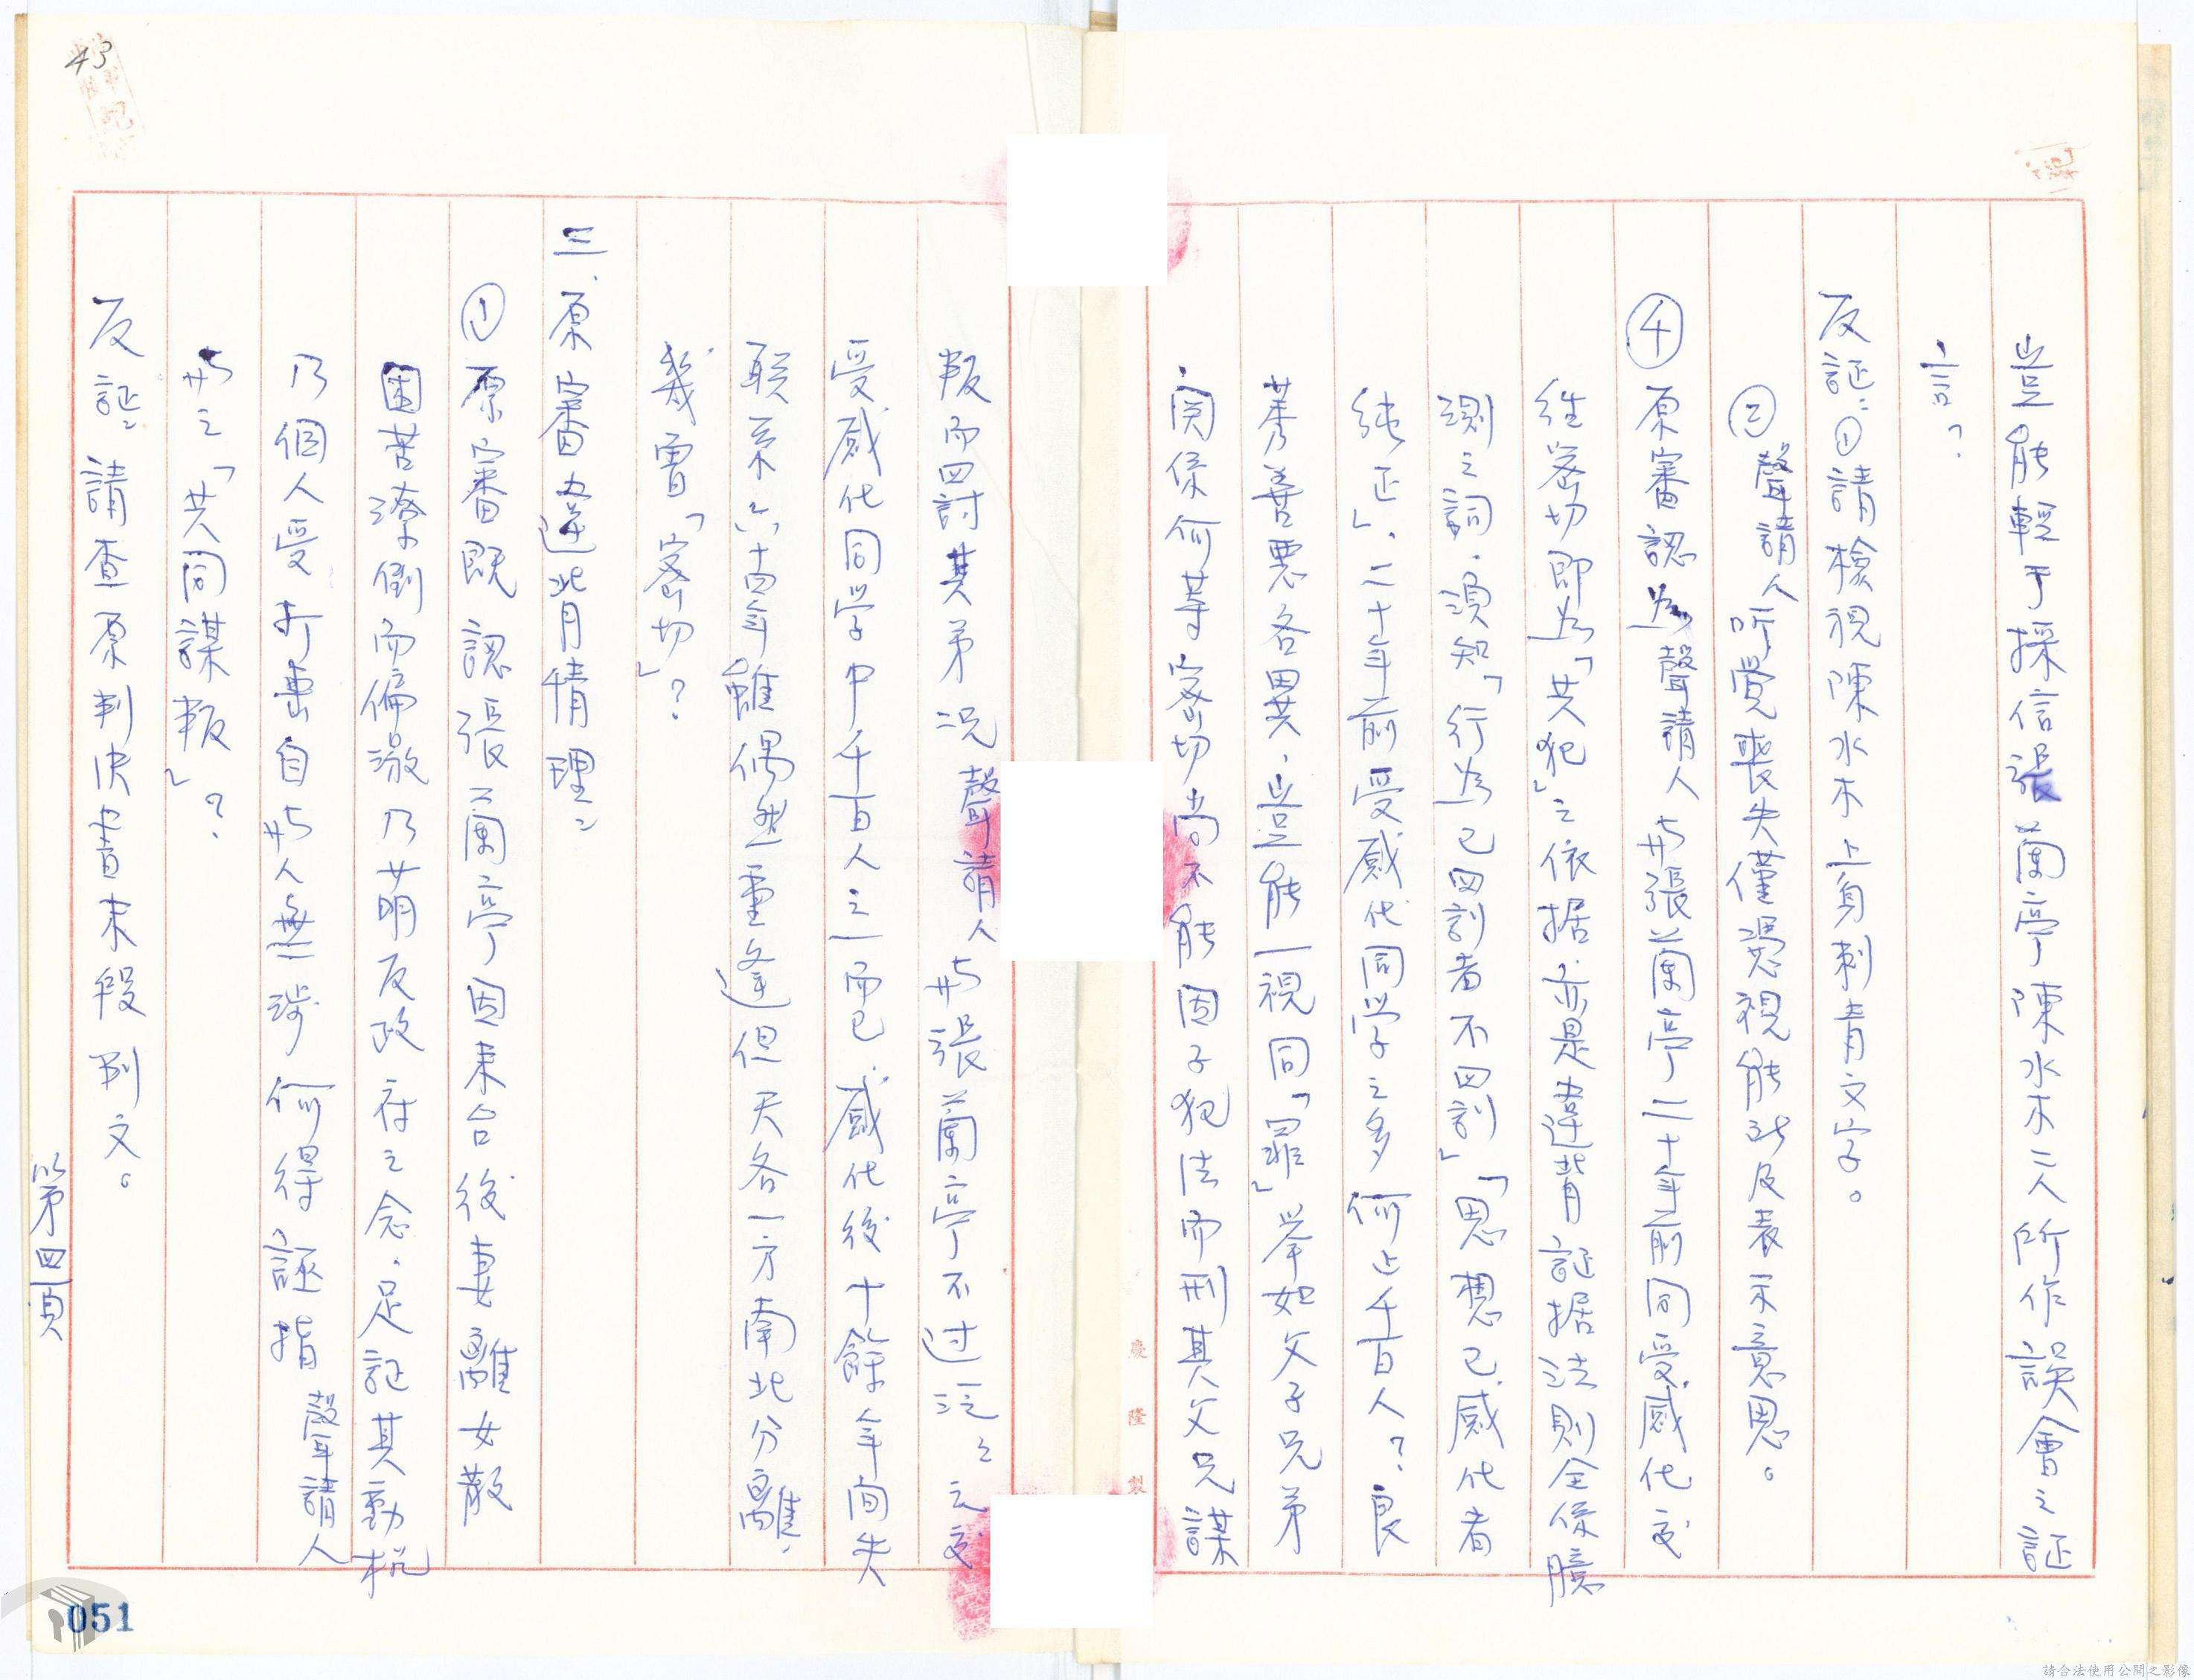 豈能輕于採信張蘭亭陳水木二人所作誤會之証
言？
反証：①請檢視陳水木上身刺青文字。
②聲請人听覺喪失僅憑視能計及表示意思。
④原審認為聲請人与張蘭亭二十年前同受感化交
往密切即為「共犯」之依据.亦是違背証据法則全係臆
測之詞.須知「行為已罰者不罰」「思想已感化者
純正」.二十年前受感化同学之多何止千百人？良
莠善惡各異.豈能一視同「罪」举如父子兄弟
関係何等密切尚不能因子犯法而刑其父兄謀
叛而罰討其弟況聲請人与張蘭亭不过泛之之交
受感化同学中千百人之一而已.感化後十餘年间失
联系六十四年雖偶然重逢但天各一方南北分離.
幾曾「密切」？
三.原審違背情理：
①原審既認張蘭亭因来台後妻離女散
困苦潦倒而偏激乃萌反政府之念.足証其動机
乃個人受打击自与人無涉何得誣指聲請人
与之「共同謀叛」？
反証：請查原判決書末段判文。
第四頁
43
051
慶隆製
請合法使用公開之影像